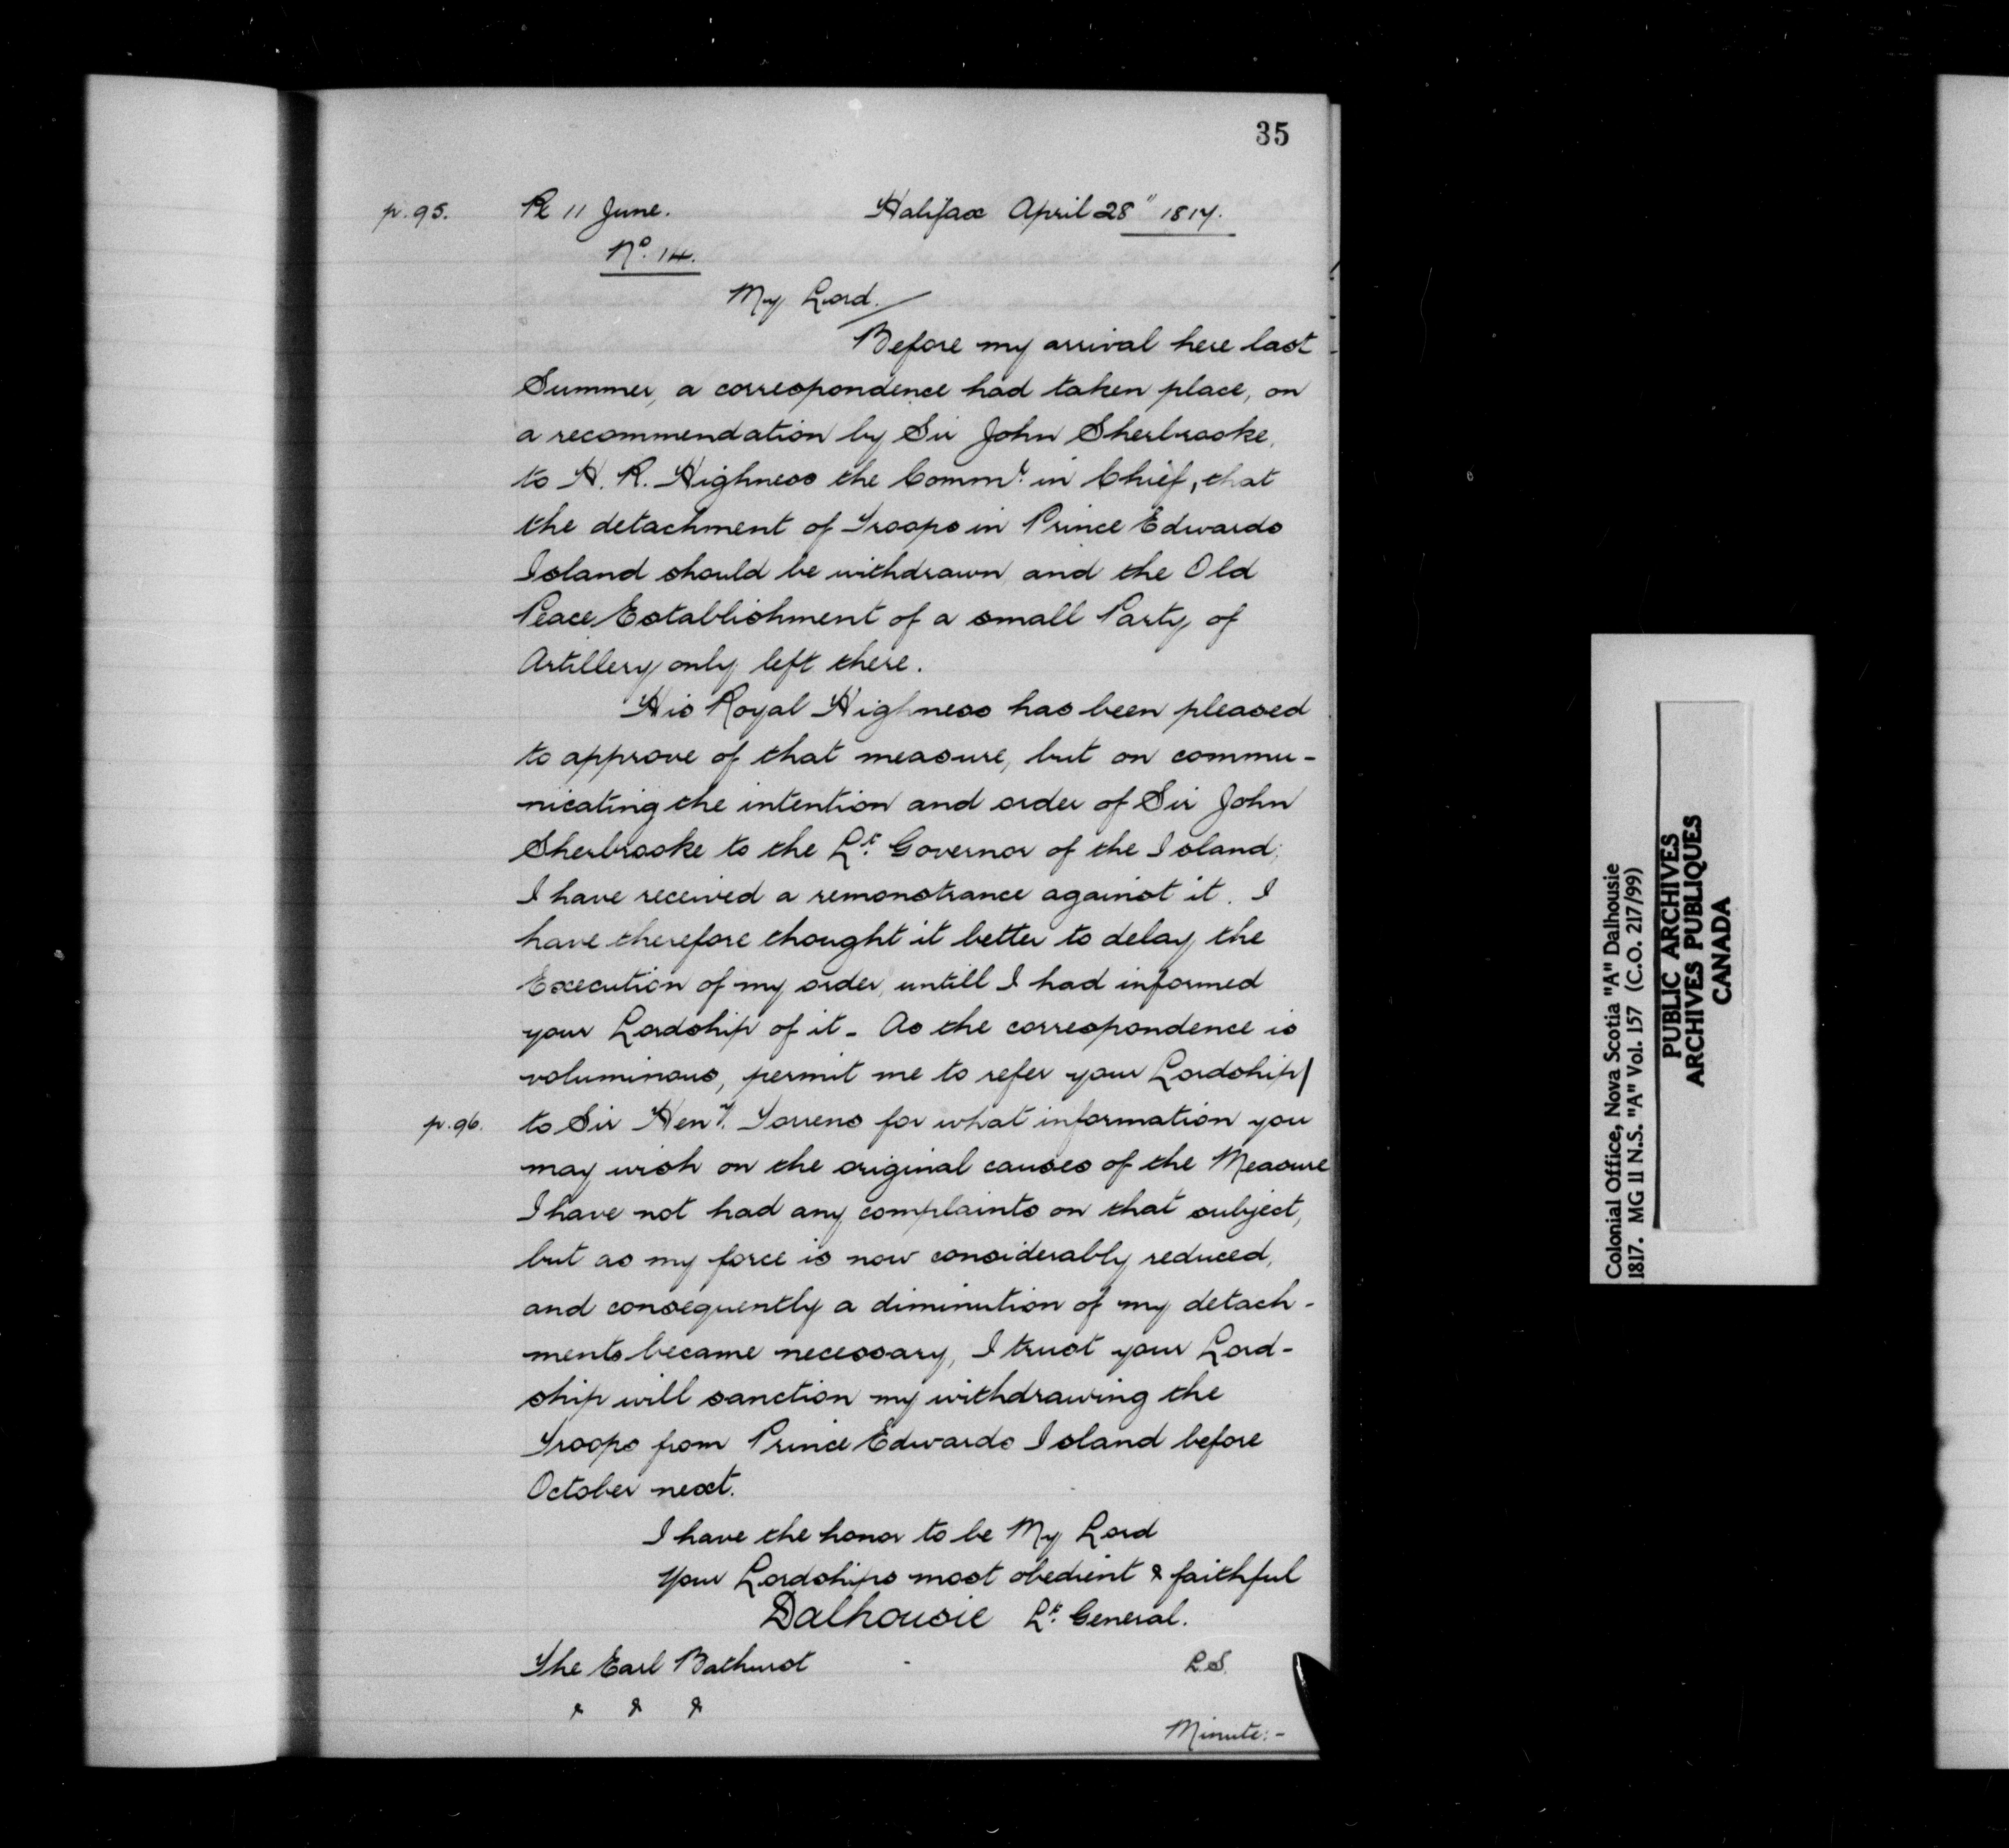 35
p. 95. R 11 June. Halifax April 28" 1817.
No. 14.
My Lord.
Before my arrival here last
Summer, a correspondence had taken place, on
a recommendation by Sir John Sherbrooke,
to H. R. Highness the Commr. in Chief, that
the detachment of Troops in Prince Edwards
Island should be withdrawn and the Old
Peace Establishment of a small Party of
Artillery only left there.
His Royal Highness has been pleased
to approve of that measure, but on commu-
nicating the intention and order of Sir John
Sherbrooke to the Lt. Governor of the Island;
I have received a remonstrance against it. I
have therefore thought it better to delay the
Execution of my order, untill I had informed
your Lordship of it - As the correspondence is
voluminous, permit me to refer your Lordship/
p. 96. to Sir Heny. Torrens for what information you
may wish on the original causes of the Measure
I have not had any complaints on that subject,
but as my force is now considerably reduced,
and consequently a diminution of my detach-
ments became necessary, I trust your Lord-
ship will sanction my withdrawing the
Troops from Prince Edwards Island before
October next.
I have the honor to be My Lord
Your Lordships most obedient & faithful
Dalhousie Lt. General.
The Earl Bathurst L.S.
& & &
Minute:-
Colonial Office, Nova Scotia "A" Dalhousie
1817. MG 11 N.S. "A" Vol. 157 (C.O. 217/99)
PUBLIC ARCHIVES
ARCHIVES PUBLIQUES
CANADA